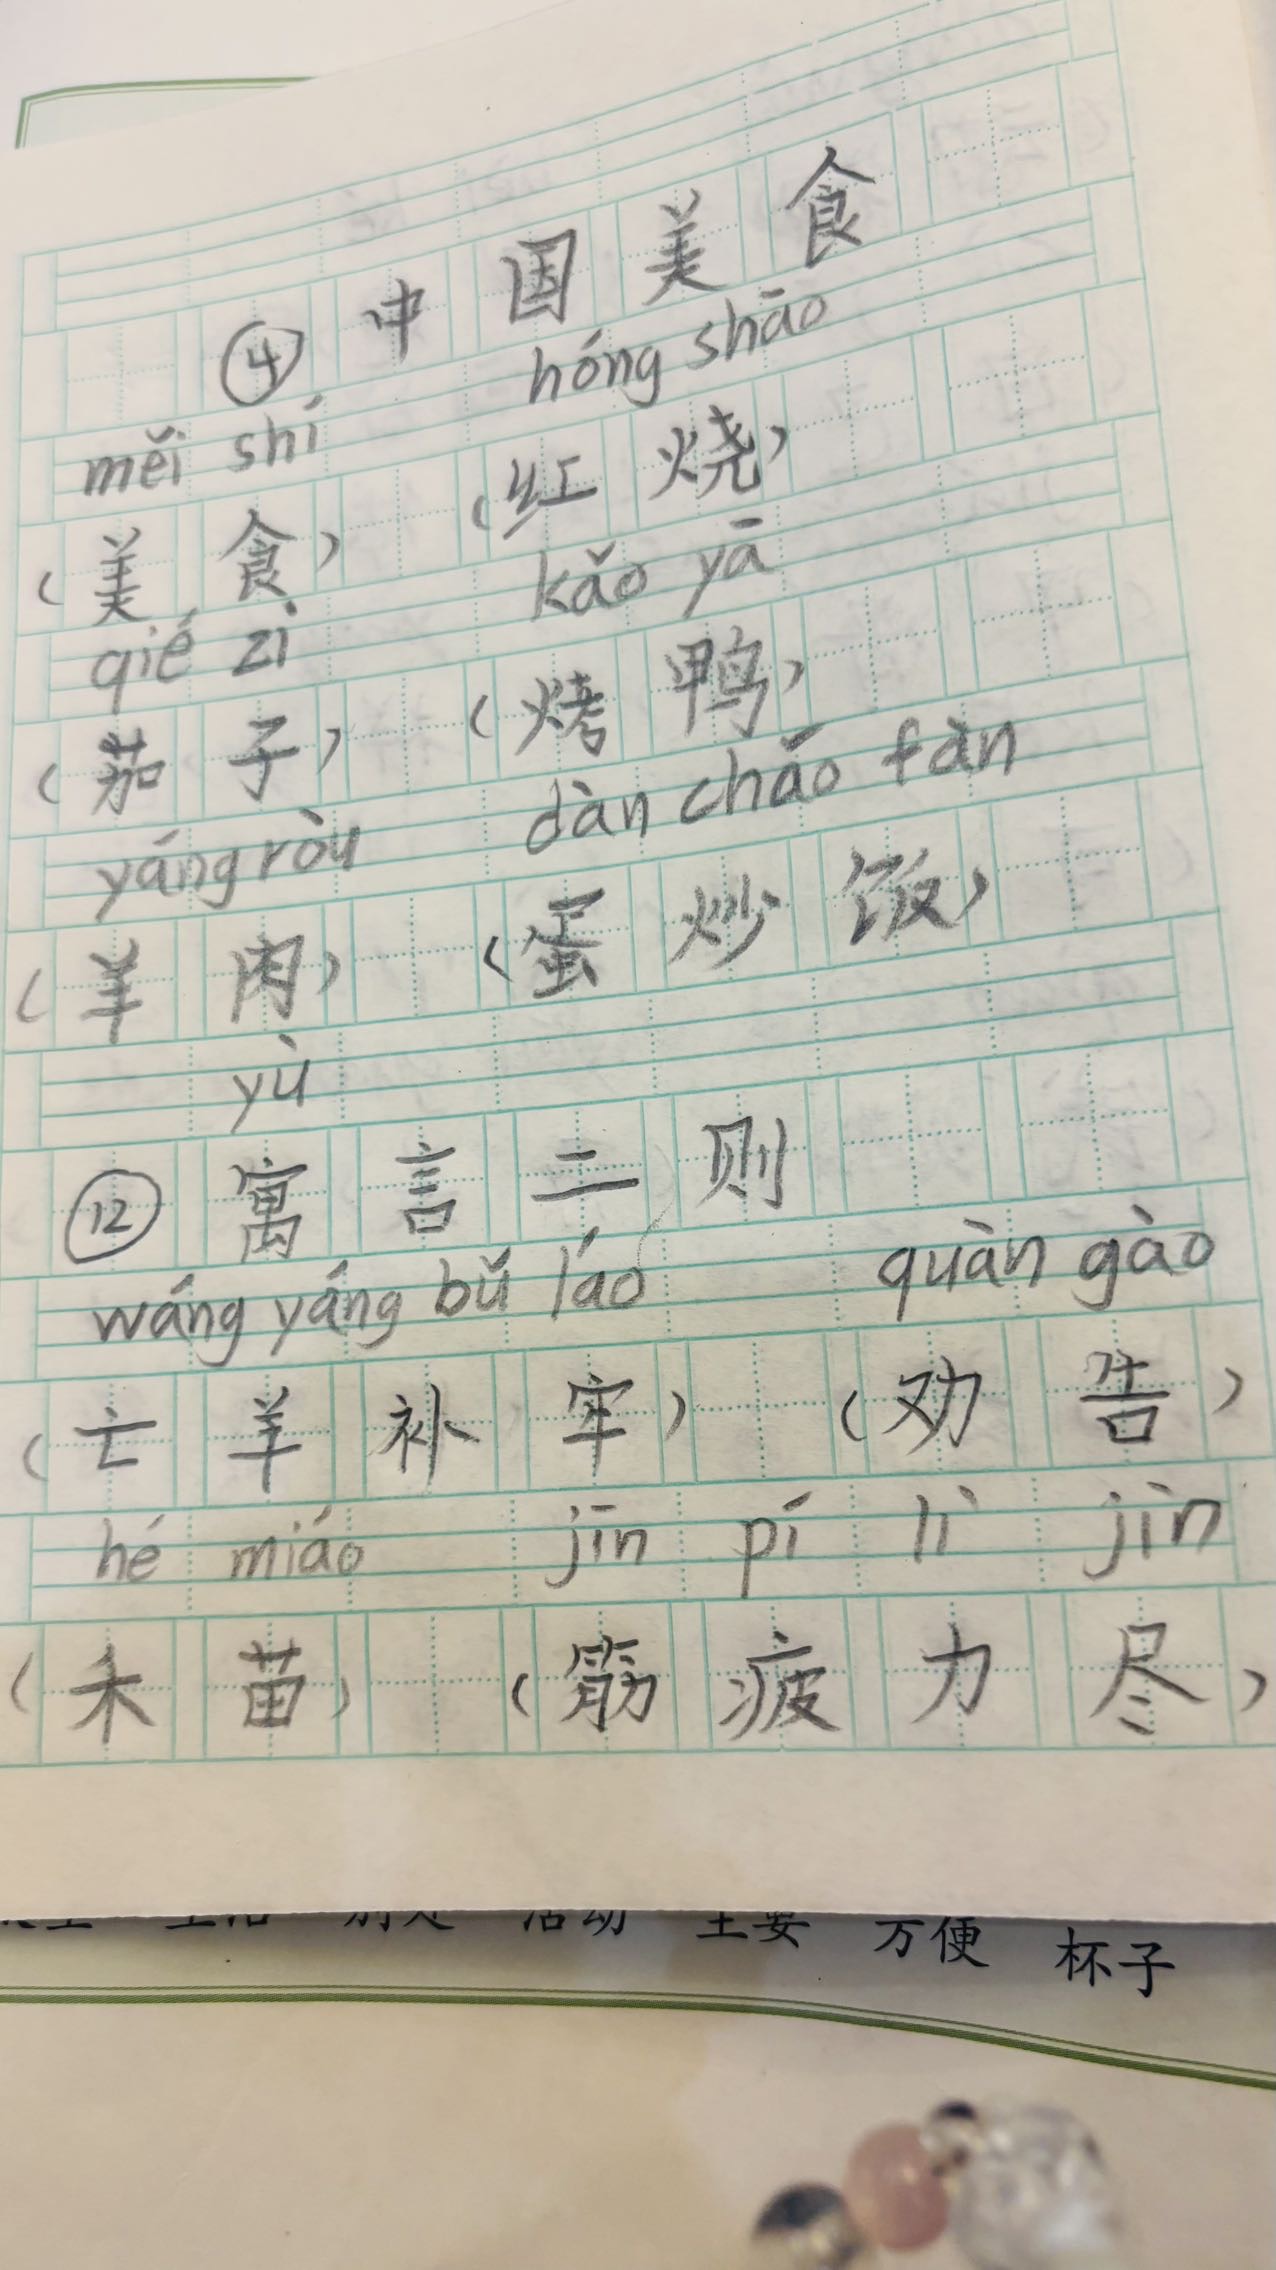 ④ 中国美食
měi shí hóng shāo
（美食） （红烧）
qié zi kǎo yā
（茄子） （烤鸭）
yáng ròu dàn chǎo fàn
（羊肉） （蛋炒饭）
yù
⑫ 寓言二则
wáng yáng bǔ láo quàn gào
（亡羊补牢） （劝告）
hé miáo jīn pí lì jìn
（禾苗） （筋疲力尽）
生活 别处 活动 主要 方便 杯子